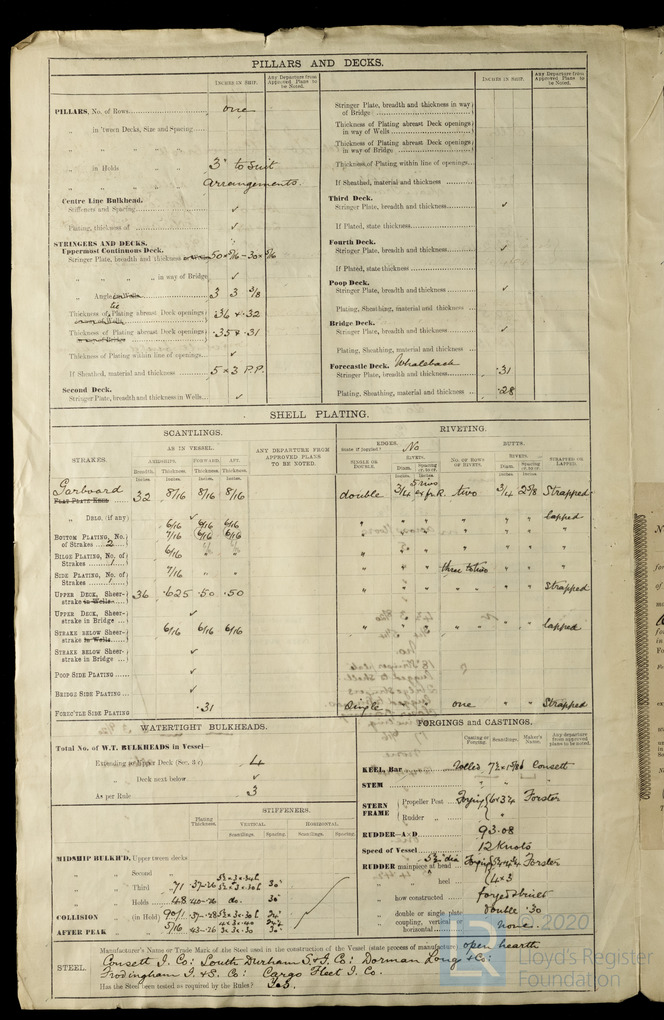 PILLARS AND DECKS.
INCHES IN SHIP. Any Departure from Approved Plans to be Noted.
PILLARS, No. of Rows one
„ in 'tween Decks, Size and Spacing
„ „ „ „
„ in Holds „ „ 3" to suit
„ „ „ „ arrangements.
Centre Line Bulkhead.
Stiffeners and Spacing ✓
Plating, thickness of ✓
STRINGERS AND DECKS.
Uppermost Continuous Deck.
Stringer Plate, breadth and thickness
„ „ „ „ in way of Bridge ✓
„ Angle 3 3 3/8
Thickness of Plating abreast Deck openings .36 & .32
Thickness of Plating abreast Deck openings .35 & .31
Thickness of Plating within line of openings ✓
If Sheathed, material and thickness 5 × 3 P.P.
Second Deck.
Stringer Plate, breadth and thickness in Wells ✓
INCHES IN SHIP. Any Departure from Approved Plans to be Noted.
Stringer Plate, breadth and thickness in way of Bridge
Thickness of Plating abreast Deck openings in way of Wells
Thickness of Plating abreast Deck openings in way of Bridge
Thickness of Plating within line of openings
If Sheathed, material and thickness
Third Deck.
Stringer Plate, breadth and thickness ✓
If Plated, state thickness
Fourth Deck.
Stringer Plate, breadth and thickness ✓
If Plated, state thickness
Poop Deck.
Stringer Plate, breadth and thickness ✓
Plating, Sheathing, material and thickness
Bridge Deck.
Stringer Plate, breadth and thickness ✓
Plating, Sheathing, material and thickness
Forecastle Deck. Whaleback
Stringer Plate, breadth and thickness .31
Plating, Sheathing, material and thickness .28
SHELL PLATING.
SCANTLINGS.
RIVETING.
STRAKES.
AS IN VESSEL.
AMIDSHIPS. FORWARD. AFT.
Breadth. Thickness. Thickness. Thickness.
Inches. Inches. Inches. Inches.
ANY DEPARTURE FROM APPROVED PLANS TO BE NOTED.
EDGES.
State if joggled? No
SINGLE OR DOUBLE.
RIVETS.
Diam.
NO. OF ROWS OF RIVETS.
BUTTS.
RIVETS.
Diam.
STRAPPED OR LAPPED.
Garboard FLAT PLATE KEEL 32 8/16 8/16 8/16 double 3/4 two 3/4 2 5/8 Strapped
„ DBLG. (if any) ✓ lapped
6/16 6/16 6/16
BOTTOM PLATING, No. of Strakes 2 7/16 6/16 6/16
BILGE PLATING, No. of Strakes 1 6/16 „ „ three to two
SIDE PLATING, No. of Strakes 7/16 „ „ Strapped
UPPER DECK, Sheerstrake in Wells 36 .625 .50 .50
UPPER DECK, Sheerstrake in Bridge ✓
STRAKE BELOW Sheerstrake in Wells 6/16 6/16 6/16 lapped
STRAKE BELOW Sheerstrake in Bridge ✓
POOP SIDE PLATING ✓
BRIDGE SIDE PLATING ✓
FORE'C'LE SIDE PLATING .31 Single one „ „ Strapped
WATERTIGHT BULKHEADS.
Total No. of W.T. BULKHEADS in Vessel—
Extending to Upper Deck (Sec. 3 c) 4
„ Deck next below ✓
As per Rule 3
Plating Thickness.
STIFFENERS.
VERTICAL. HORIZONTAL.
Scantlings. Spacing. Scantlings. Spacing.
MIDSHIP BULKH'D, Upper tween decks
„ „ Second „
„ „ Third „ .37-.26 30"
„ „ Holds .40-.26 do. 30"
COLLISION „ (in Hold) .37-.28 24"
AFTER PEAK „ „ .43-.26
FORGINGS and CASTINGS.
Casting or Forging. Scantlings. Maker's Name. Any departure from approved plans to be noted.
KEEL, Bar Rolled Consett
STEM „ „
STERN FRAME Propeller Post Forging 6×3¼ Forster
Rudder „
RUDDER—A×D 93.08
Speed of Vessel 12 Knots
RUDDER mainpiece at head 5½" dia Forging Forster
„ „ heel 4×3
„ how constructed forged & built
„ double or single plate double .30
„ coupling, vertical or horizontal none.
STEEL.
Manufacturer's Name or Trade Mark of the Steel used in the construction of the Vessel (state process of manufacture). open hearth
Consett I. Co: South Durham S. & I. Co: Dorman Long & Co:
Frodingham I. & S. Co: Cargo Fleet I. Co.
Has the Steel been tested as required by the Rules? Yes.
© 2020
LR
Lloyd's Register
Foundation